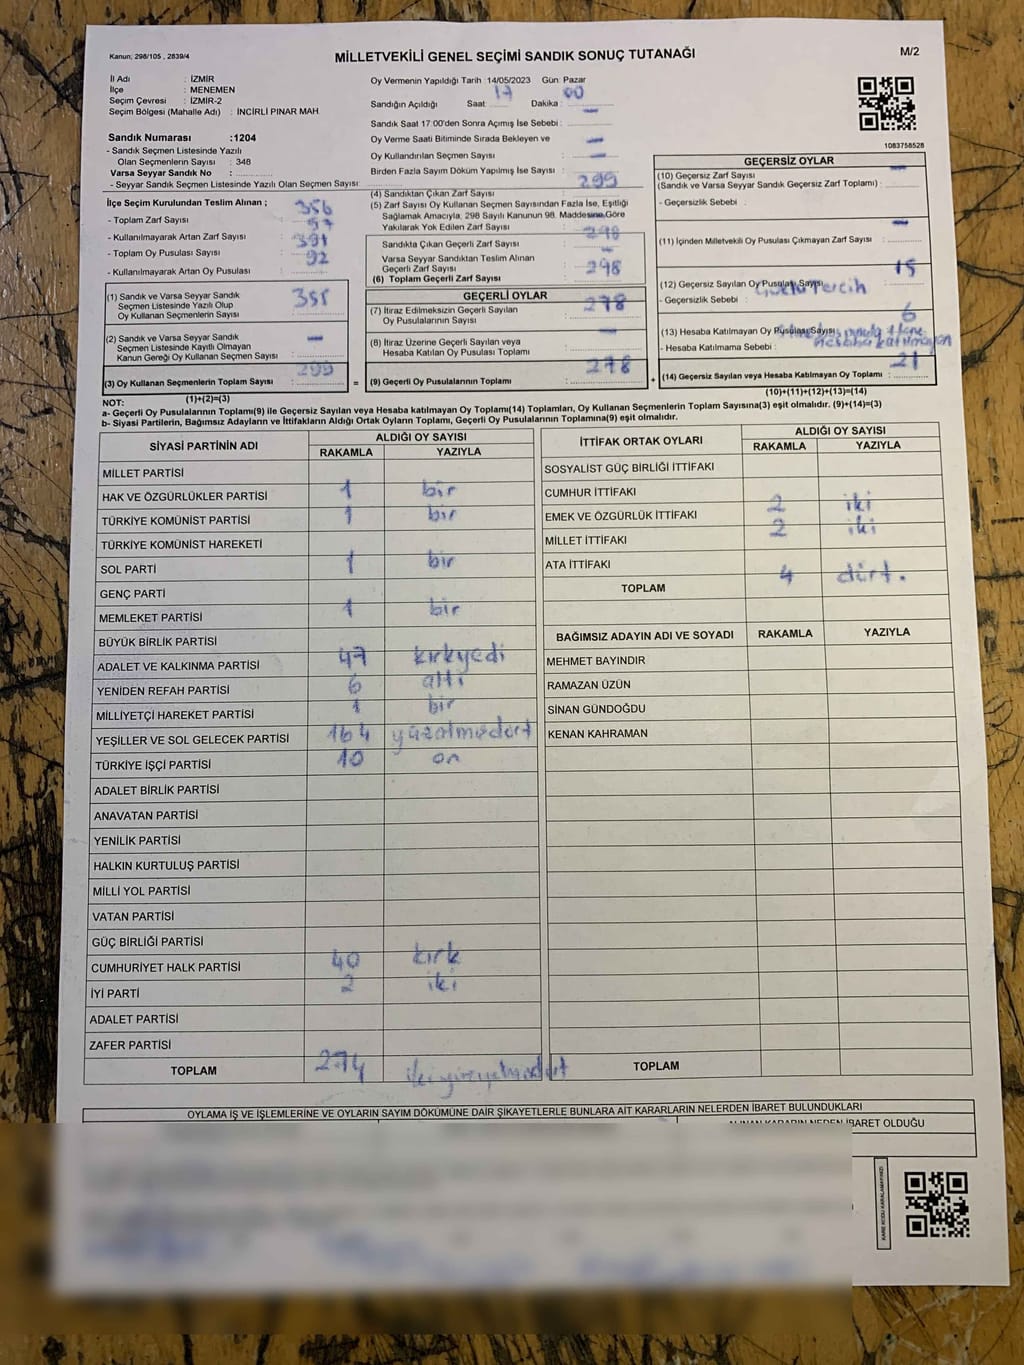 Kanun; 298/105 , 2839/4
MİLLETVEKİLİ GENEL SEÇİMİ SANDIK SONUÇ TUTANAĞI
M/2
İl Adı : İZMİR
İlçe : MENEMEN
Seçim Çevresi : İZMİR-2
Seçim Bölgesi (Mahalle Adı) : İNCİRLİ PINAR MAH
Sandık Numarası :1204
- Sandık Seçmen Listesinde Yazılı
Olan Seçmenlerin Sayısı : 348
Varsa Seyyar Sandık No :
- Seyyar Sandık Seçmen Listesinde Yazılı Olan Seçmen Sayısı:
İlçe Seçim Kurulundan Teslim Alınan ;
- Toplam Zarf Sayısı : 356
- Kullanılmayarak Artan Zarf Sayısı : 57
- Toplam Oy Pusulası Sayısı : 391
- Kullanılmayarak Artan Oy Pusulası : 92
(1) Sandık ve Varsa Seyyar Sandık
Seçmen Listesinde Yazılı Olup
Oy Kullanan Seçmenlerin Sayısı :
(2) Sandık ve Varsa Seyyar Sandık
Seçmen Listesinde Kayıtlı Olmayan
Kanun Gereği Oy Kullanan Seçmen Sayısı : —
(3) Oy Kullanan Seçmenlerin Toplam Sayısı : 299
(1)+(2)=(3)
Oy Vermenin Yapıldığı Tarih :14/05/2023 Gün: Pazar
Sandığın Açıldığı Saat: 17 Dakika : 00
Sandık Saat 17:00'den Sonra Açımış İse Sebebi : —
Oy Verme Saati Bitiminde Sırada Bekleyen ve
Oy Kullandırılan Seçmen Sayısı : —
Birden Fazla Sayım Döküm Yapılmış İse Sayısı : —
(4) Sandıktan Çıkan Zarf Sayısı : 299
(5) Zarf Sayısı Oy Kullanan Seçmen Sayısından Fazla İse, Eşitliği
Sağlamak Amacıyla, 298 Sayılı Kanunun 98. Maddesine Göre
Yakılarak Yok Edilen Zarf Sayısı :
Sandıkta Çıkan Geçerli Zarf Sayısı : 298
Varsa Seyyar Sandıktan Teslim Alınan
Geçerli Zarf Sayısı : —
(6) Toplam Geçerli Zarf Sayısı : 298
GEÇERLİ OYLAR
(7) İtiraz Edilmeksizin Geçerli Sayılan
Oy Pusulalarının Sayısı : 278
(8) İtiraz Üzerine Geçerli Sayılan veya
Hesaba Katılan Oy Pusulası Toplamı : —
= (9) Geçerli Oy Pusulalarının Toplamı : 278
1083758528
GEÇERSİZ OYLAR
(10) Geçersiz Zarf Sayısı
(Sandık ve Varsa Seyyar Sandık Geçersiz Zarf Toplamı) : —
- Geçersizlik Sebebi :
(11) İçinden Milletvekili Oy Pusulası Çıkmayan Zarf Sayısı : —
(12) Geçersiz Sayılan Oy Pusulası Sayısı : 15
- Geçersizlik Sebebi : Tercih
(13) Hesaba Katılmayan Oy Pusulası Sayısı : 6
- Hesaba Katılmama Sebebi : hesaba katılmayan
+ (14) Geçersiz Sayılan veya Hesaba Katılmayan Oy Toplamı : 21
(10)+(11)+(12)+(13)=(14)
NOT:
a- Geçerli Oy Pusulalarının Toplamı(9) ile Geçersiz Sayılan veya Hesaba katılmayan Oy Toplamı(14) Toplamları, Oy Kullanan Seçmenlerin Toplam Sayısına(3) eşit olmalıdır. (9)+(14)=(3)
b- Siyasi Partilerin, Bağımsız Adayların ve İttifakların Aldığı Ortak Oyların Toplamı, Geçerli Oy Pusulalarının Toplamına(9) eşit olmalıdır.
SİYASİ PARTİNİN ADI
ALDIĞI OY SAYISI
RAKAMLA YAZIYLA
MİLLET PARTİSİ
HAK VE ÖZGÜRLÜKLER PARTİSİ 1 bir
TÜRKİYE KOMÜNİST PARTİSİ 1 bir
TÜRKİYE KOMÜNİST HAREKETİ
SOL PARTİ 1 bir
GENÇ PARTİ
MEMLEKET PARTİSİ 1 bir
BÜYÜK BİRLİK PARTİSİ
ADALET VE KALKINMA PARTİSİ 47 kırkyedi
YENİDEN REFAH PARTİSİ 6 altı
MİLLİYETÇİ HAREKET PARTİSİ 1 bir
YEŞİLLER VE SOL GELECEK PARTİSİ 164 yüzaltmışdört
TÜRKİYE İŞÇİ PARTİSİ 10 on
ADALET BİRLİK PARTİSİ
ANAVATAN PARTİSİ
YENİLİK PARTİSİ
HALKIN KURTULUŞ PARTİSİ
MİLLİ YOL PARTİSİ
VATAN PARTİSİ
GÜÇ BİRLİĞİ PARTİSİ
CUMHURİYET HALK PARTİSİ 40 kırk
İYİ PARTİ 2 iki
ADALET PARTİSİ
ZAFER PARTİSİ
TOPLAM 274
İTTİFAK ORTAK OYLARI
ALDIĞI OY SAYISI
RAKAMLA YAZIYLA
SOSYALİST GÜÇ BİRLİĞİ İTTİFAKI
CUMHUR İTTİFAKI
EMEK VE ÖZGÜRLÜK İTTİFAKI 2 iki
MİLLET İTTİFAKI 2 iki
ATA İTTİFAKI
TOPLAM 4 dört.
BAĞIMSIZ ADAYIN ADI VE SOYADI RAKAMLA YAZIYLA
MEHMET BAYINDIR
RAMAZAN ÜZÜN
SİNAN GÜNDOĞDU
KENAN KAHRAMAN
TOPLAM
OYLAMA İŞ VE İŞLEMLERİNE VE OYLARIN SAYIM DÖKÜMÜNE DAİR ŞİKAYETLERLE BUNLARA AİT KARARLARIN NELERDEN İBARET BULUNDUKLARI
ALINAN KARARIN NEDEN İBARET OLDUĞU
KARE KODU KARALAMAYINIZ!